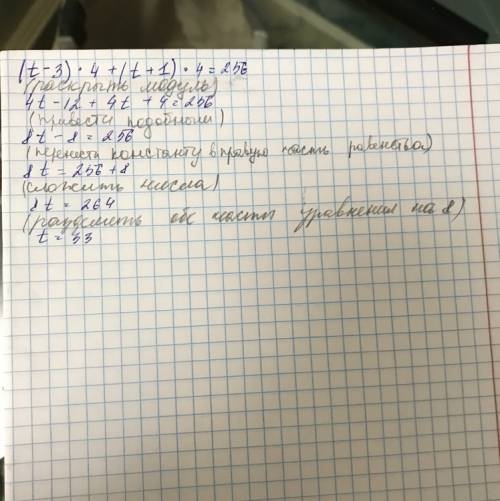 (t-3)·4+(t+1)·4=256
(раскрыть модуль)
4t-12+4t+4=256
(привести подобными)
8t-8=256
(перенести константу в правую часть равенства)
8t=256+8
(сложить числа)
8t=264
(разделить обе части уравнения на 8)
t=33